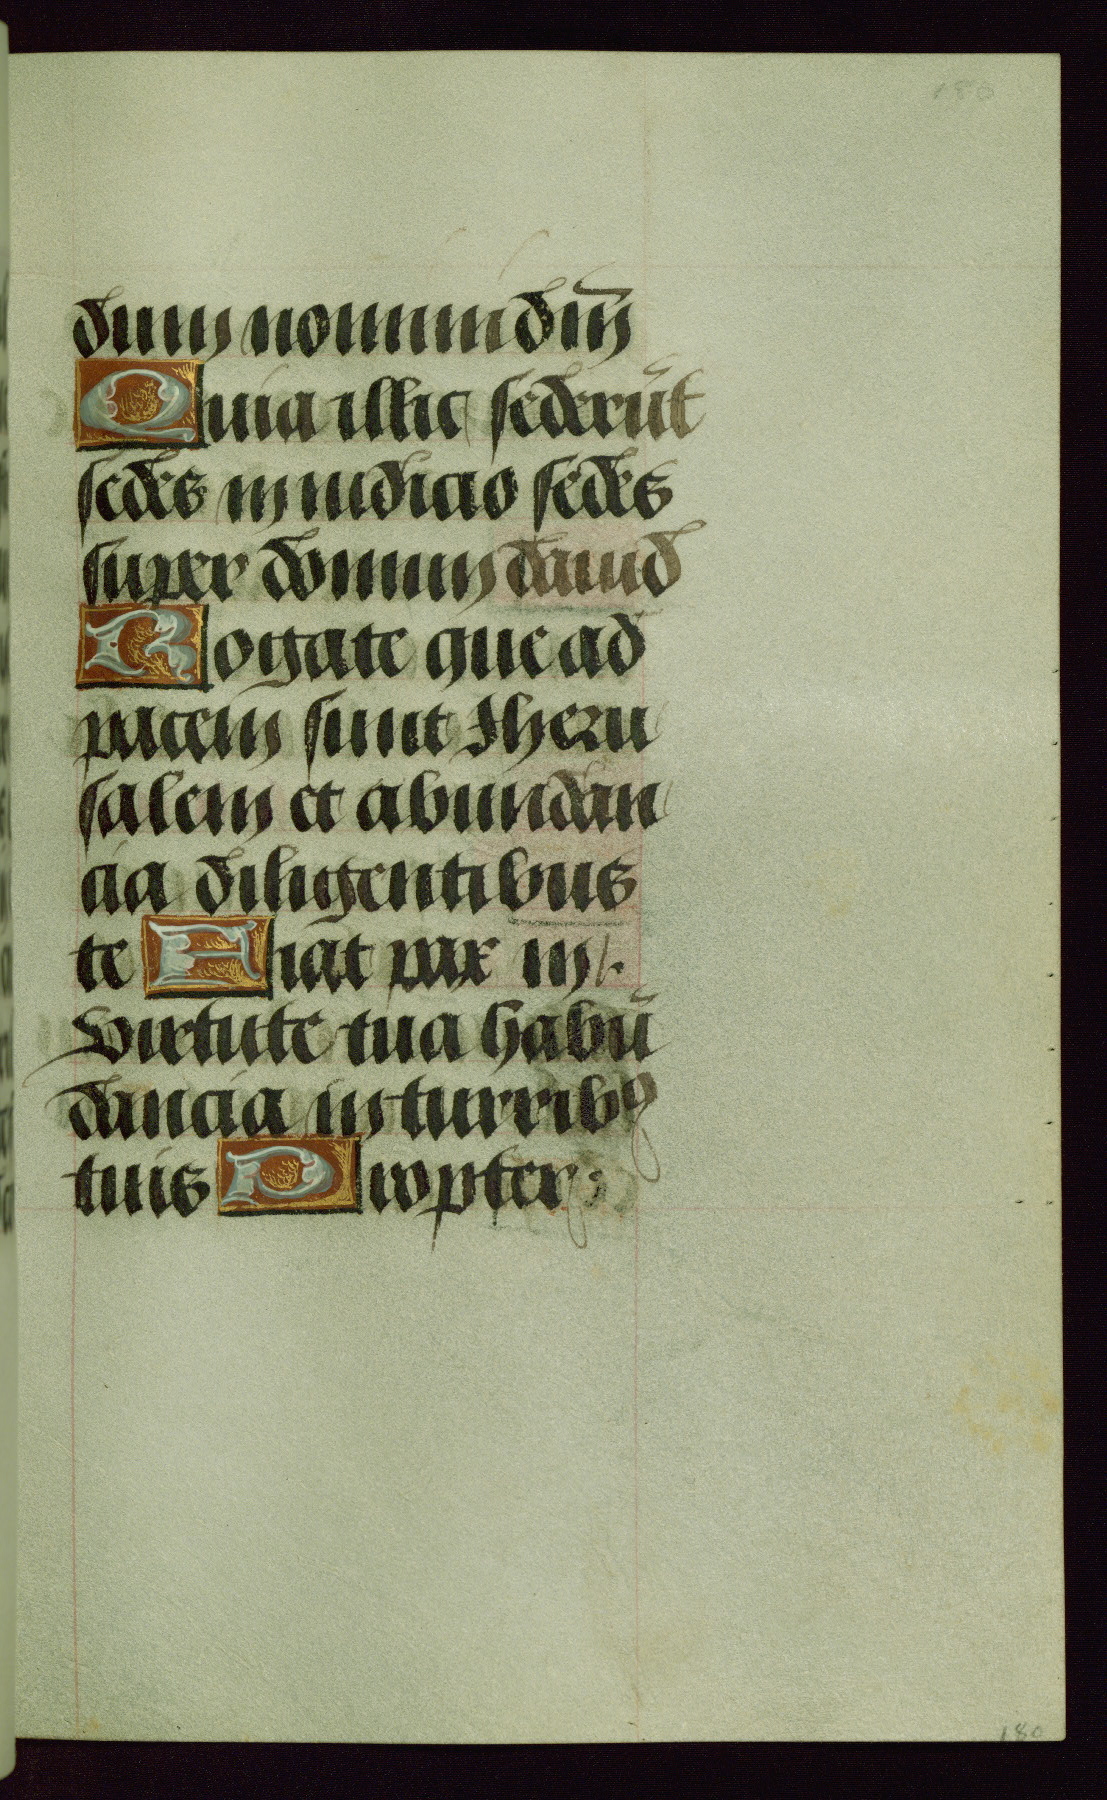 180
dum nomini dñi
Quia illic sederūt
sedes in iudicio sedes
super domum dauid
Rogate que ad
pacem sunt Jheru
salem et abundan
cia diligentibus
te Fiat pax in
virtute tua habū
dancia in turribꝰ
tuis Propter
180